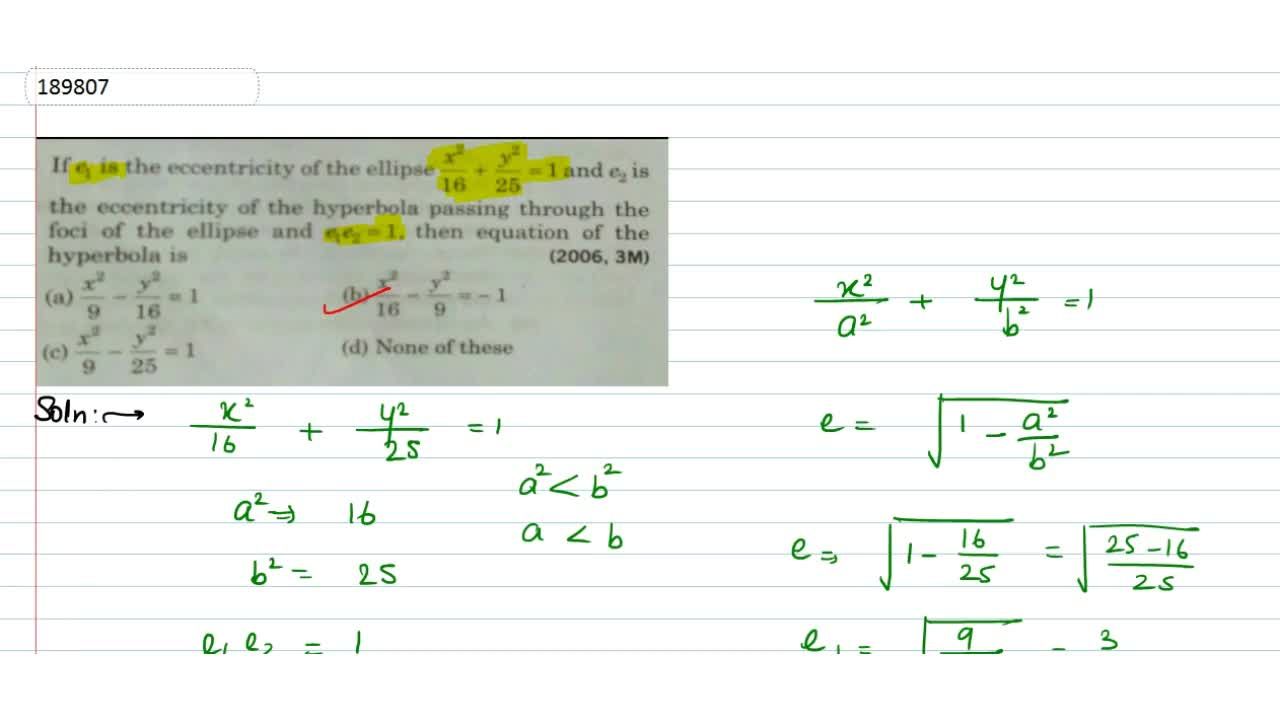 189807
If e₁ is the eccentricity of the ellipse x²/16 + y²/25 = 1 and e₂ is
the eccentricity of the hyperbola passing through the
foci of the ellipse and e₁e₂ = 1, then equation of the
hyperbola is (2006, 3M)
(a) x²/9 − y²/16 = 1 (b) x²/16 − y²/9 = − 1
(c) x²/9 − y²/25 = 1 (d) None of these
x²/a² + y²/b² = 1
Soln:→ x²/16 + y²/25 = 1
e = √(1 − a²/b²)
a² ⇒ 16
a² < b²
a < b
b² = 25
e ⇒ √(1 − 16/25) = √((25 − 16)/25)
e₁ e₂ = 1
e₁ = √9 = 3